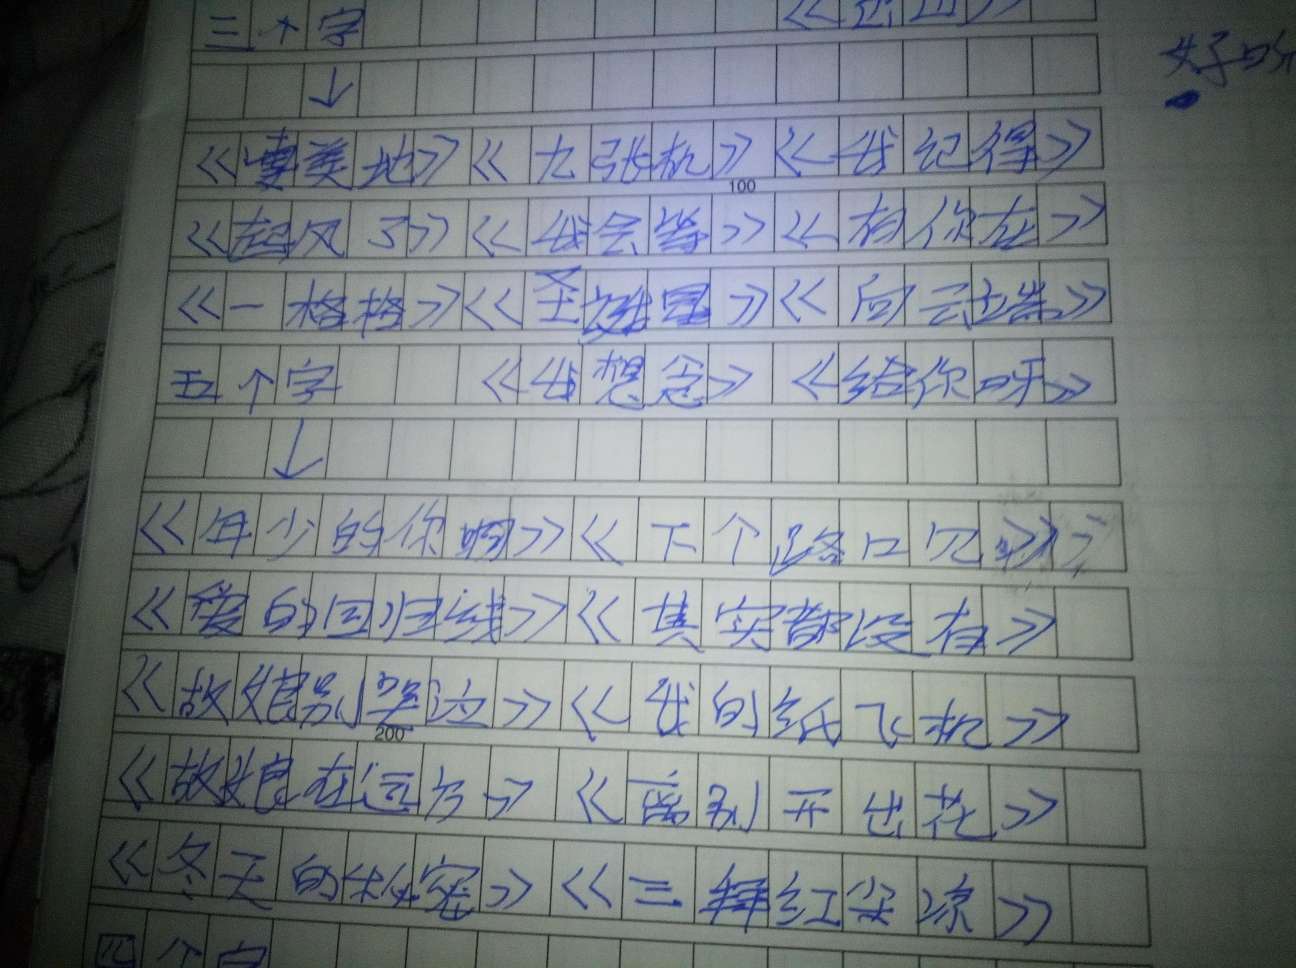 三个字
好吩
↓
《凄美地》《九张机》《我记得》
100
《起风了》《我会等》《有你在》
《一格格》《圣诞星》《向云端》
五个字 《我想念》 《给你呀》
↓
《年少的你啊》《下个路口见》
《爱的回归线》《其实都没有》
《故娘别哭泣》《我的纸飞机》
200
《故娘在远方》 《离别开出花》
《冬天的秘密》《三拜红尘凉》
四个字